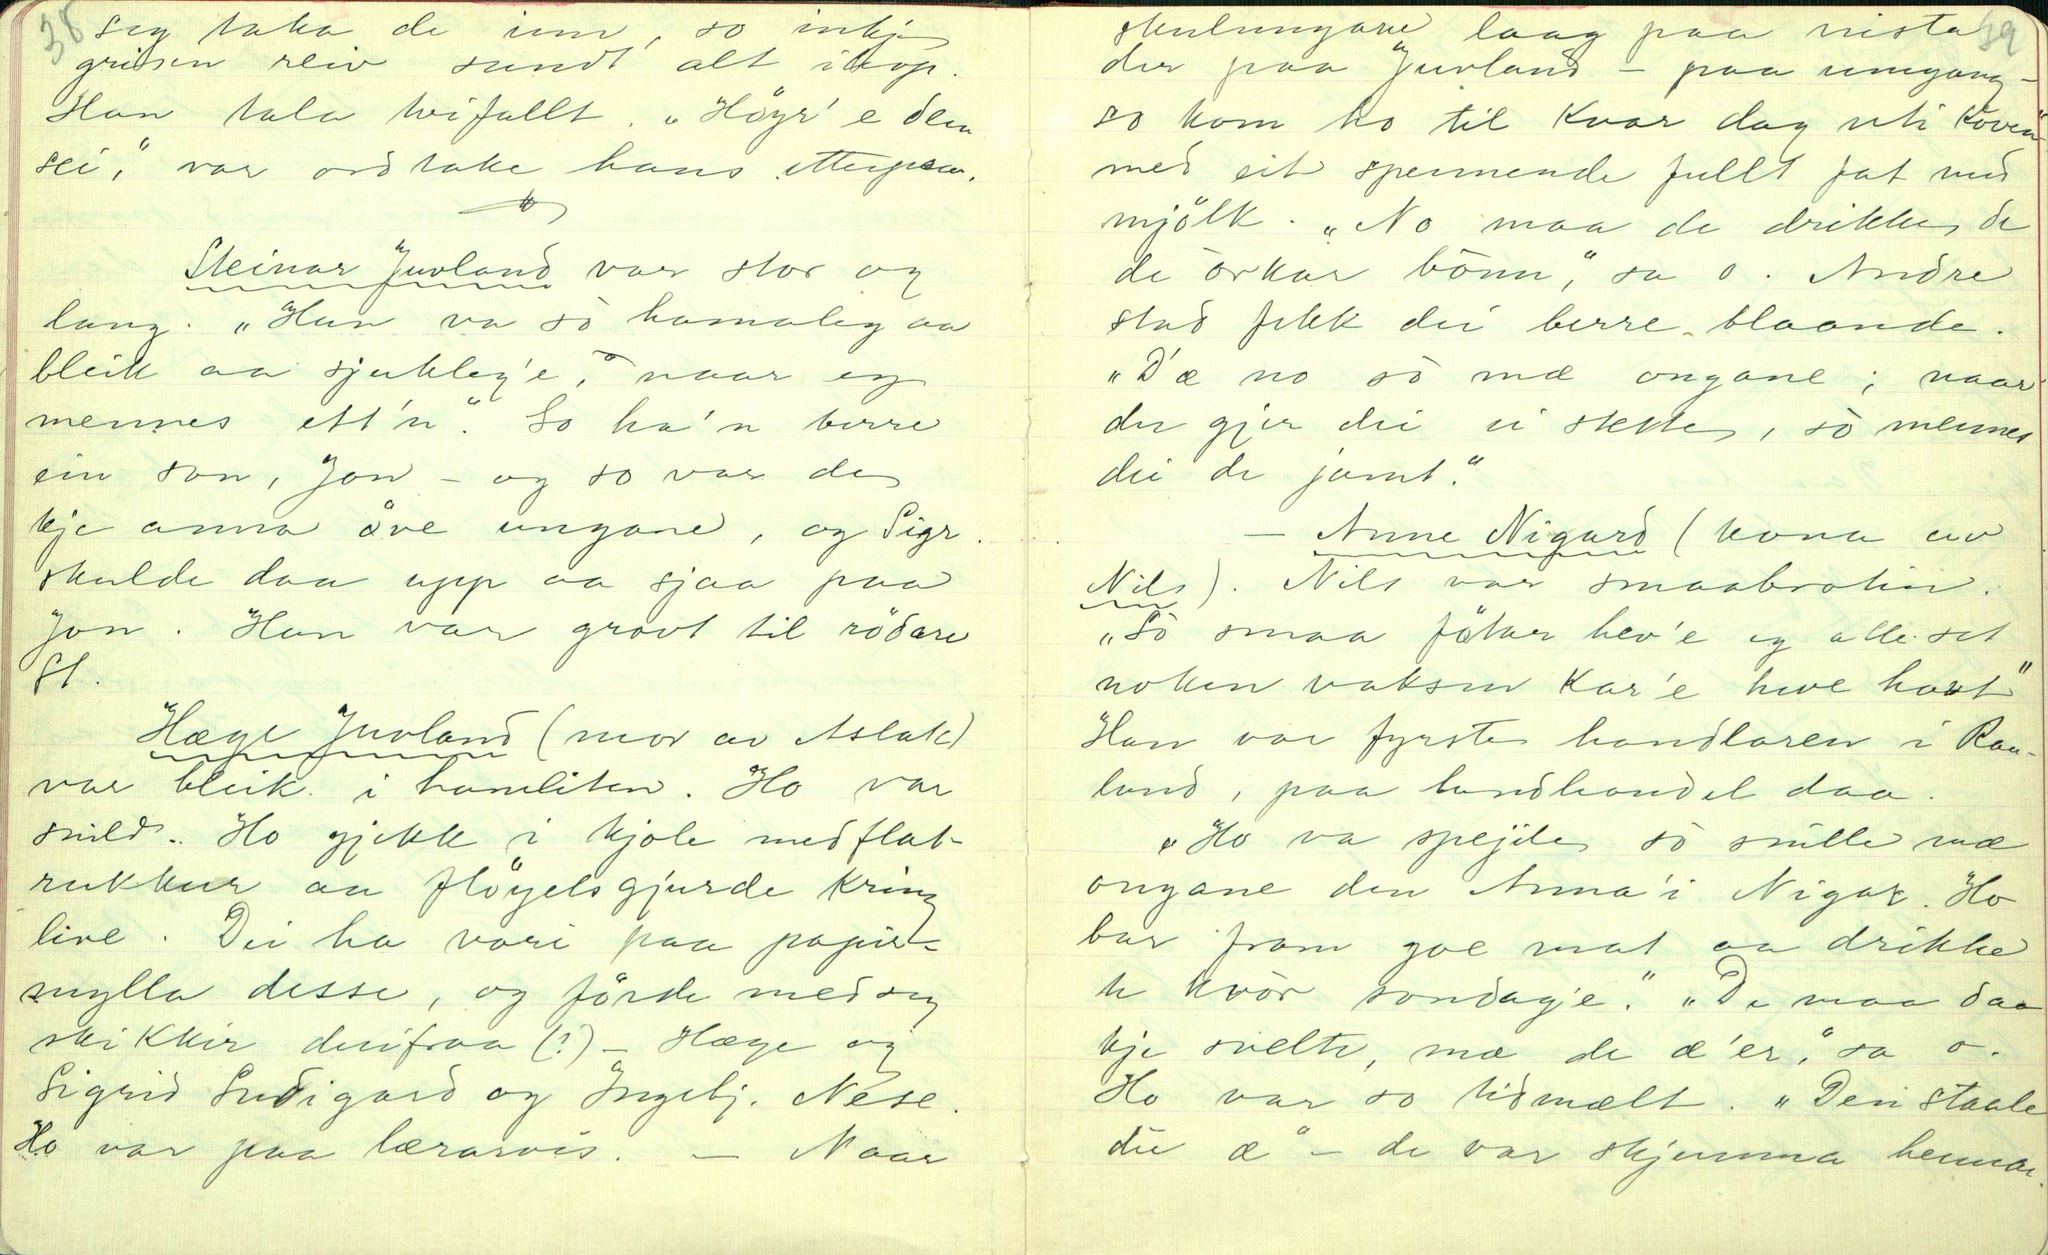 38
seg taka de inn, so inkje
grisen reiv sundt alt ihop.
Han tala tvifallt. „Höyr' e dem
sei," var ordtake hans etterpaa.
Steinar Juvland var stor og
lang. „Han va sò hamaleg aa
bleik aa sjukleg'e, naar eg
mennes ett'n". So ha'n berre
ein son, Jon – og so var de
kje anna öve ungane, og Sigr.
skulde daa upp aa sjaa paa
Jon. Han var grovt til rödare
St.
Hæge Juvland (mor av Aslak)
var bleik i hamliten. Ho var
snild. Ho gjekk i kjole med flat-
rukkur aa flöyelsgjurde kring
live. Dei ha vori paa papir-
mylla desse, og förde med seg
skikkir derifraa (?) – Hæge og
Sigrid Sudigard og Ingebj. Nese.
Ho var paa lærarvis. – Naar
39
skulungane laag paa nista
der paa Juvland – paa umgang –
so kom ho til kvar dag uti koven
med eit spennende fullt fat med
mjölk. „No maa de drikke de
de orkar bönn," sa o. Andre
stad fekk dei berre blaande.
„D'æ no sò mæ ongane; naar
der gjer dei ei stette, sò mennes
dei de jamt."
– Anne Nigard (kona av
Nils). Nils var smaabrotin.
„Sò smaa fötar hev'e eg alle set
noken vaksen kar'e have havt"
Han var fyrste handlaren i Rau-
land, paa landhandel daa.
„Ho va spejele sò snille mæ
ongane den Anna'i Nigar. Ho
bar fram goe mat aa drikke
te kvòr sondagje." „De maa daa
kje svelte, mæ de æ'er," sa o.
Ho var so tidmælt. „Dei staale
dei æ" – de var skjemma hennar.